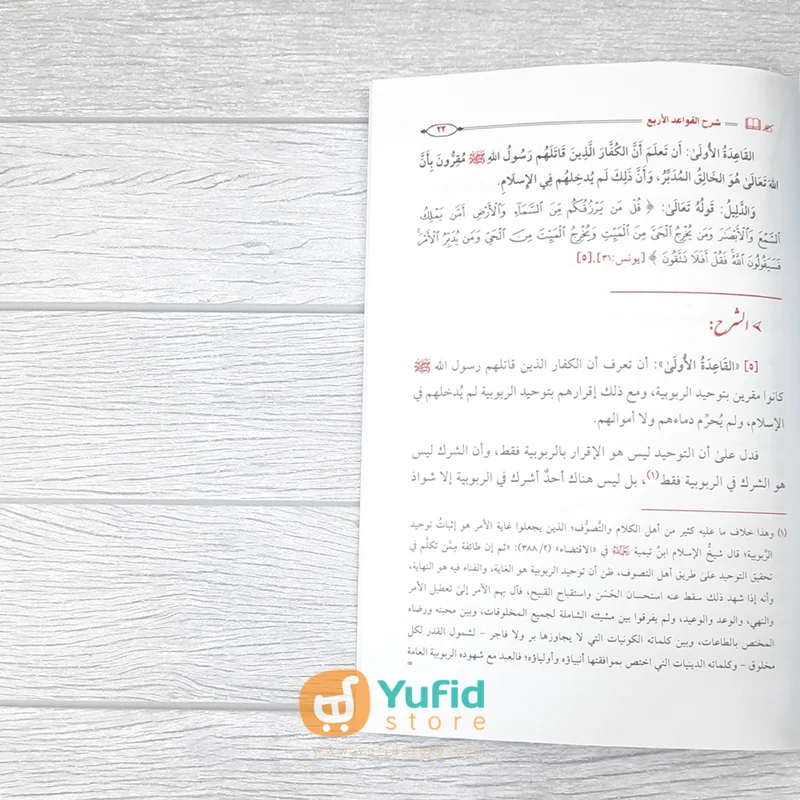 شرح القواعد الأربع
٢٣
القَاعِدَةُ الأُولَىٰ: أَن تَعلَمَ أَنَّ الكُفَّارَ الَّذِينَ قَاتَلَهُم رَسُولُ اللهِ ﷺ مُقِرُّونَ بِأَنَّ
اللهَ تَعَالَىٰ هُوَ الخَالِقُ المُدَبِّرُ، وَأَنَّ ذَلِكَ لَم يُدخِلهُم فِي الإِسلَامِ.
وَالدَّلِيلُ: قَولُهُ تَعَالَىٰ: ﴿ قُلْ مَن يَرْزُقُكُم مِّنَ ٱلسَّمَآءِ وَٱلْأَرْضِ أَمَّن يَمْلِكُ
ٱلسَّمْعَ وَٱلْأَبْصَٰرَ وَمَن يُخْرِجُ ٱلْحَىَّ مِنَ ٱلْمَيِّتِ وَيُخْرِجُ ٱلْمَيِّتَ مِنَ ٱلْحَىِّ وَمَن يُدَبِّرُ ٱلْأَمْرَ ۚ
فَسَيَقُولُونَ ٱللَّهُ ۚ فَقُلْ أَفَلَا تَتَّقُونَ ﴾ [يونس:٣١].[٥]
الشرح:
[٥] «القَاعِدَةُ الأُولَىٰ»: أن تعرف أن الكفار الذين قاتلهم رسول الله ﷺ
كانوا مقرين بتوحيد الربوبية، ومع ذلك إقرارهم بتوحيد الربوبية لم يُدخلهم في
الإسلام، ولم يُحرِّم دماءهم ولا أموالهم.
فدل علىٰ أن التوحيد ليس هو الإقرار بالربوبية فقط، وأن الشرك ليس
هو الشرك في الربوبية فقط(١)، بل ليس هناك أحدٌ أشرك في الربوبية إلا شواذ
(١) وهذا خلاف ما عليه كثير من أهل الكلام والتَّصوُّف؛ الذين يجعلوا غاية الأمر هو إثباتُ توحيد
الرُّبوبية؛ قال شيخُ الإسلام ابنُ تيمية رَحِمَهُ اللهُ في «الاقتضاء» (٢/ ٣٨٨): «ثم إن طائفة ممَّن تكلَّم في
تحقيق التوحيد علىٰ طريق أهل التصوف، ظن أن توحيد الربوبية هو الغاية، والفناء فيه هو النهاية،
وأنه إذا شهد ذلك سقط عنه استحسان الحَسَن واستقباح القبيح، فآل بهم الأمر إلىٰ تعطيل الأمر
والنهي، والوعد والوعيد، ولم يفرقوا بين مشيئته الشاملة لجميع المخلوقات، وبين محبته ورضاه
المختص بالطاعات، وبين كلماته الكونيات التي لا يجاوزها بر ولا فاجر – لشمول القدر لكل
مخلوق – وكلماته الدينيات التي اختص بموافقتها أنبياؤه وأولياؤه؛ فالعبد مع شهوده الربوبية العامة
Yufid
store
www.yufidstore.com